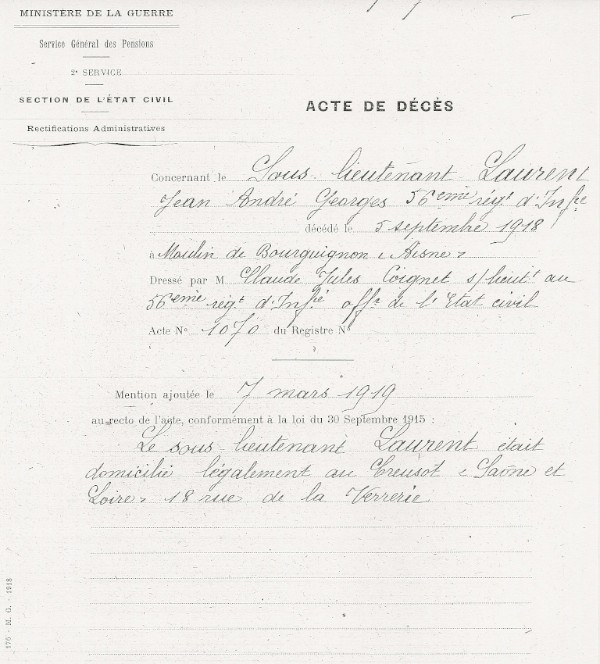 MINISTÈRE DE LA GUERRE
Service Général des Pensions
2e SERVICE
SECTION DE L'ÉTAT CIVIL
Rectifications Administratives
ACTE DE DÉCÈS
Concernant le Sous-lieutenant Laurent
Jean André Georges 56eme régt d'Infie
décédé le 5 septembre 1918
à Moulin de Bourguignon « Aisne »
Dressé par M Claude Jules Coignet s/lieutt au
56eme régt d'Infie offr de l'Etat civil
Acte No 1070 du Registre No
Mention ajoutée le 7 mars 1919
au recto de l'acte, conformément à la loi du 30 Septembre 1915 :
Le sous-lieutenant Laurent était
domicilié légalement au Creusot « Saône et
Loire » 18 rue de la Verrerie
176 - M. G. - 1918